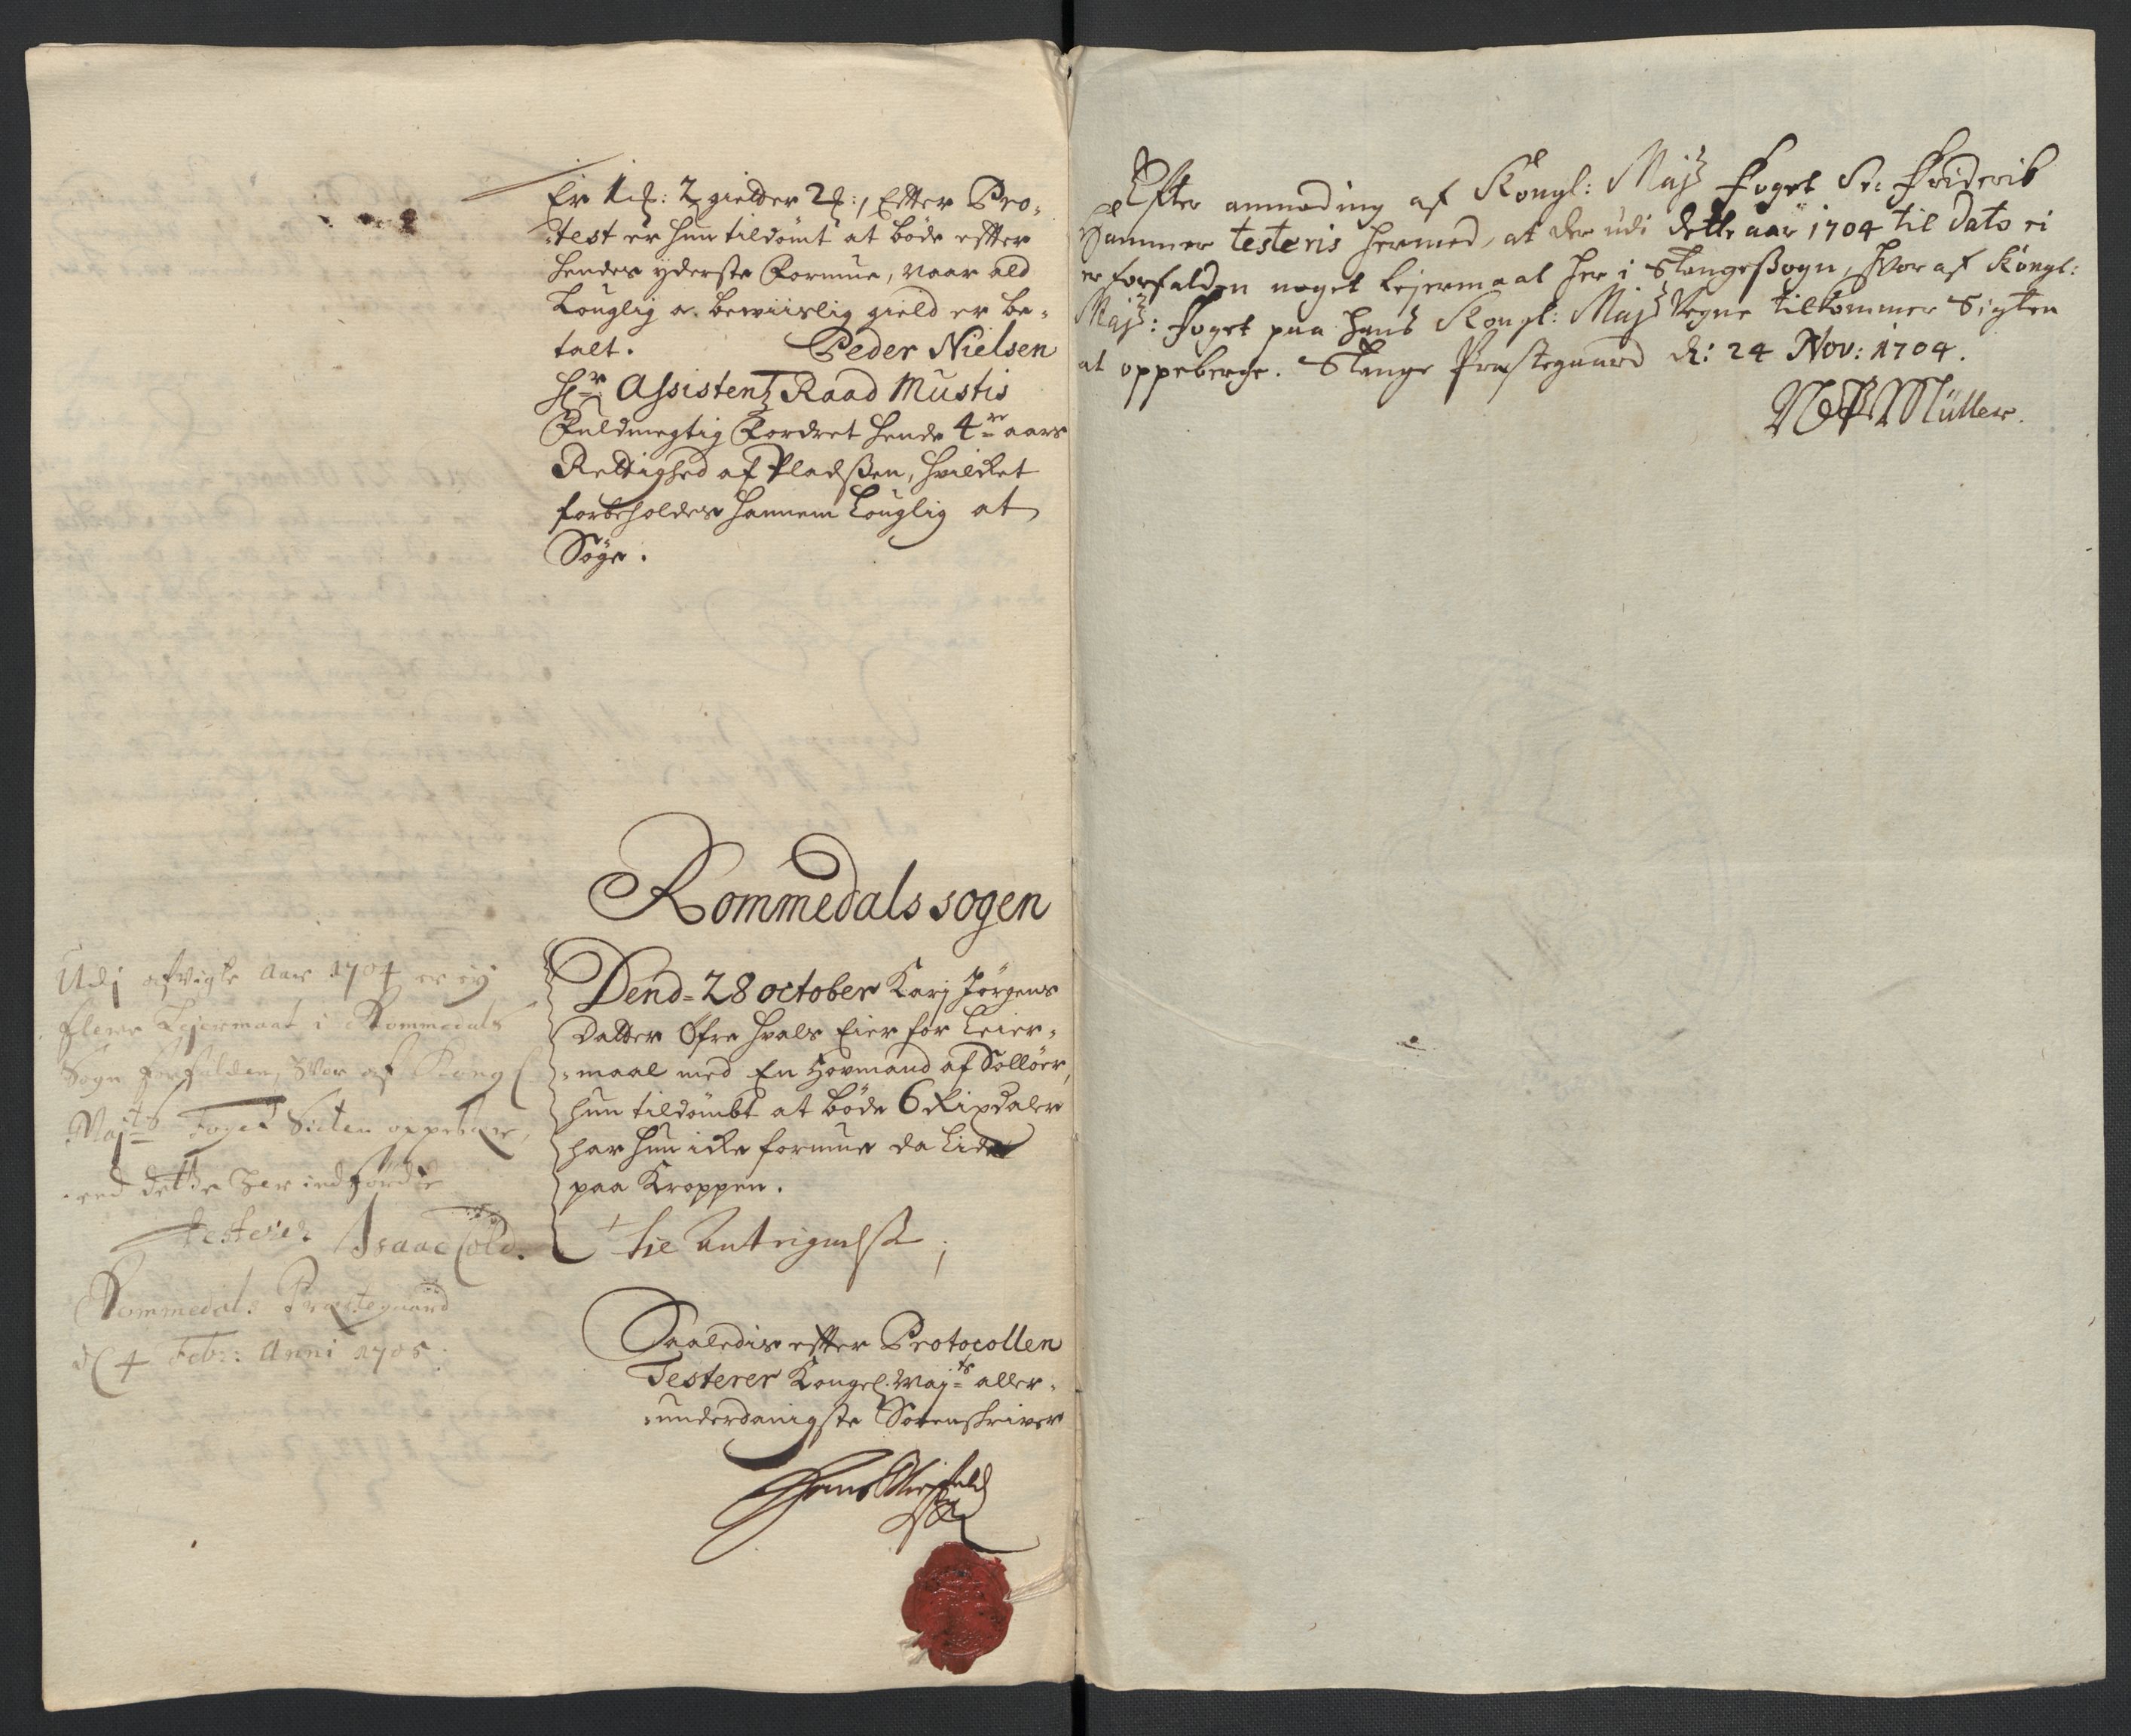 Er 1 : 2 gielder 2 :, Efter Pro¸
¸test er hun tildømt at bøde efter
hendes yderste Formue, naar ald
Louglig oc bewiislig gield er be¸
talt. Peder Nielsen
Hr Assistentz Raad Mustis
Fuldmegtig Fordret hende 4re aars
Rettighed af Pladsen, hvilcket
forbeholdes hannem Louglig at
Søge.
Rommedals sogen
Dend 28 october Karj Jørgens
datter Øfre hvals Eier for Leier¸
¸maal med En Hovmand af Solløer,
hun tildømbt at bøde 6 Rixdaler
har hun icke formue da Lide
paa Kroppen.
til
Saaledis efter Protocollen
Testerer Kongel. Maj:ts aller¸
¸underdanigste Sorenskriver
Hans
Udj afvigte Aar 1704 er ey
flere Lejermaal i Rommedals
Sogn forfalden, hvor af Kongl
Maj:ts Foget Sicten oppebær,
end dette her indførdte
testerer Isaac Cold.
Rommedals Præstegaard
d 4 Febr: Anni 1705.
Efter anmoding af Kongl: Majs Foget Sr: Friderik
Hammer testeris hermed, at der udi dette aar 1704 til dato ei
er forfalden noget lejermaal her i Stange Sogn, hvor af Kongl:
Majs: Foget paa hans Kongl: Majs Vegne tilkommer Sigten
at oppeberge. Stange Præstegaard d: 24 Nov: 1704.
Müller.